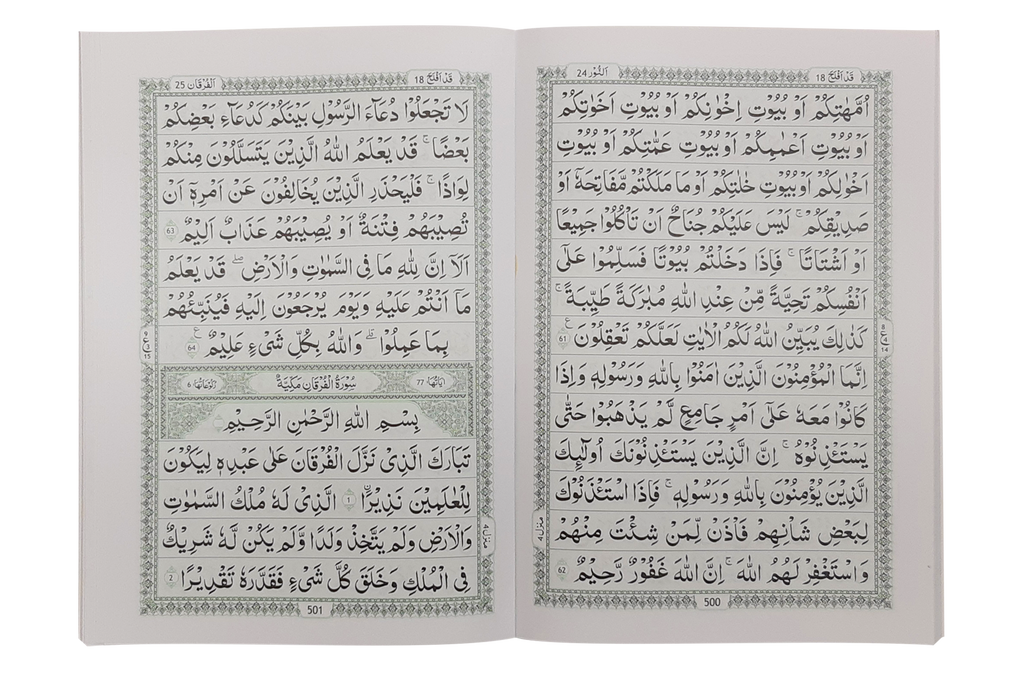 قَدْ اَفْلَحَ 18
اَلنُّوْر 24
اُمَّهٰتِكُمْ اَوْ بُيُوْتِ اِخْوٰنِكُمْ اَوْ بُيُوْتِ اَخَوٰتِكُمْ
اَوْ بُيُوْتِ اَعْمَامِكُمْ اَوْ بُيُوْتِ عَمّٰتِكُمْ اَوْ بُيُوْتِ
اَخْوَالِكُمْ اَوْ بُيُوْتِ خٰلٰتِكُمْ اَوْ مَا مَلَكْتُمْ مَّفَاتِحَهٗۤ اَوْ
صَدِيْقِكُمْ ؕ لَيْسَ عَلَيْكُمْ جُنَاحٌ اَنْ تَاْكُلُوْا جَمِيْعًا
اَوْ اَشْتَاتًا ؕ فَاِذَا دَخَلْتُمْ بُيُوْتًا فَسَلِّمُوْا عَلٰۤى
اَنْفُسِكُمْ تَحِيَّةً مِّنْ عِنْدِ اللّٰهِ مُبٰرَكَةً طَيِّبَةً ؕ
كَذٰلِكَ يُبَيِّنُ اللّٰهُ لَكُمُ الْاٰيٰتِ لَعَلَّكُمْ تَعْقِلُوْنَ 61 ع
اِنَّمَا الْمُؤْمِنُوْنَ الَّذِيْنَ اٰمَنُوْا بِاللّٰهِ وَرَسُوْلِهٖ وَاِذَا
كَانُوْا مَعَهٗ عَلٰۤى اَمْرٍ جَامِعٍ لَّمْ يَذْهَبُوْا حَتّٰى
يَسْتَاْذِنُوْهُ ؕ اِنَّ الَّذِيْنَ يَسْتَاْذِنُوْنَكَ اُولٰٓئِكَ
الَّذِيْنَ يُؤْمِنُوْنَ بِاللّٰهِ وَرَسُوْلِهٖ ۚ فَاِذَا اسْتَاْذَنُوْكَ
لِبَعْضِ شَاْنِهِمْ فَاْذَنْ لِّمَنْ شِئْتَ مِنْهُمْ
وَاسْتَغْفِرْ لَهُمُ اللّٰهَ ؕ اِنَّ اللّٰهَ غَفُوْرٌ رَّحِيْمٌ 62
منزل ٤
500
قَدْ اَفْلَحَ 18
اَلْفُرْقَان 25
لَا تَجْعَلُوْا دُعَآءَ الرَّسُوْلِ بَيْنَكُمْ كَدُعَآءِ بَعْضِكُمْ
بَعْضًا ؕ قَدْ يَعْلَمُ اللّٰهُ الَّذِيْنَ يَتَسَلَّلُوْنَ مِنْكُمْ
لِوَاذًا ۚ فَلْيَحْذَرِ الَّذِيْنَ يُخَالِفُوْنَ عَنْ اَمْرِهٖۤ اَنْ
تُصِيْبَهُمْ فِتْنَةٌ اَوْ يُصِيْبَهُمْ عَذَابٌ اَلِيْمٌ 63
اَلَاۤ اِنَّ لِلّٰهِ مَا فِى السَّمٰوٰتِ وَالْاَرْضِ ؕ قَدْ يَعْلَمُ
مَاۤ اَنْتُمْ عَلَيْهِ وَيَوْمَ يُرْجَعُوْنَ اِلَيْهِ فَيُنَبِّئُهُمْ
بِمَا عَمِلُوْا ؕ وَاللّٰهُ بِكُلِّ شَىْءٍ عَلِيْمٌ 64 ع
اٰيَاتُهَا 77
سُوْرَةُ الْفُرْقَانِ مَكِّيَّةٌ
رُكُوْعَاتُهَا 6
بِسْمِ اللّٰهِ الرَّحْمٰنِ الرَّحِيْمِ
تَبَارَكَ الَّذِىْ نَزَّلَ الْفُرْقَانَ عَلٰى عَبْدِهٖ لِيَكُوْنَ
لِلْعٰلَمِيْنَ نَذِيْرًا 1 الَّذِىْ لَهٗ مُلْكُ السَّمٰوٰتِ
وَالْاَرْضِ وَلَمْ يَتَّخِذْ وَلَدًا وَّلَمْ يَكُنْ لَّهٗ شَرِيْكٌ
فِى الْمُلْكِ وَخَلَقَ كُلَّ شَىْءٍ فَقَدَّرَهٗ تَقْدِيْرًا 2
منزل ٤
501